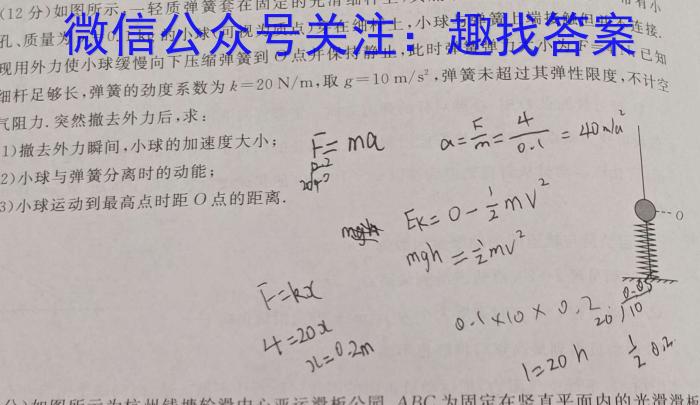 (12分)如图所示,一轻质弹簧套在固定的光滑细杆上,
有小
孔、质量为
微信公众号关注：趣找答案
现用外力使小球缓慢向下压缩弹簧到O点并保持静止,此时弹簧弹力大小为F=
已知
细杆足够长,弹簧的劲度系数为k=20 N/m,取g=10 m/s²,弹簧未超过其弹性限度,不计空
气阻力.突然撤去外力后,求:
1)撤去外力瞬间,小球的加速度大小;
2)小球与弹簧分离时的动能;
3)小球运动到最高点时距O点的距离.
F=ma
a=F/m=4/0.1=40m/s²
E_K=0-½mv²
mgh=½mv²
F=kx
4=20x
x=0.2m
0.1×10×0.2
0.05
20/10
1=20h
½ 0.2
O
分)如图所示为杭州钱塘轮滑中心亚运滑板公园,ABC为固定在竖直平面内的光滑滑板